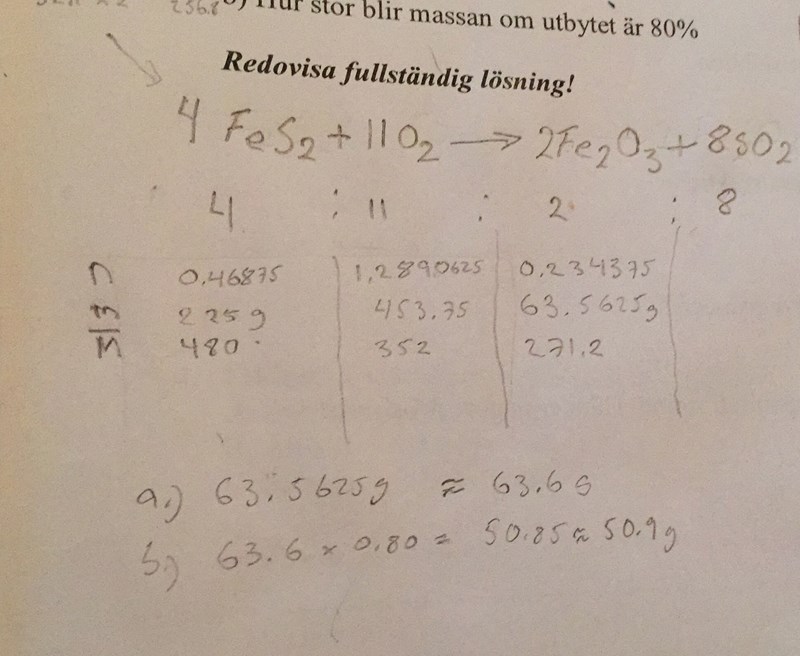 236.8
b) Hur stor blir massan om utbytet är 80%
Redovisa fullständig lösning!
4 FeS2 + 11O2 → 2Fe2O3 + 8SO2
4 : 11 : 2 : 8
n 0,46875 1,2890625 0,234375
m 225g 453.75 63.5625g
M 480 352 271,2
a.) 63.5625g ≈ 63.6g
b.) 63.6 × 0.80 = 50.85 ≈ 50.9g